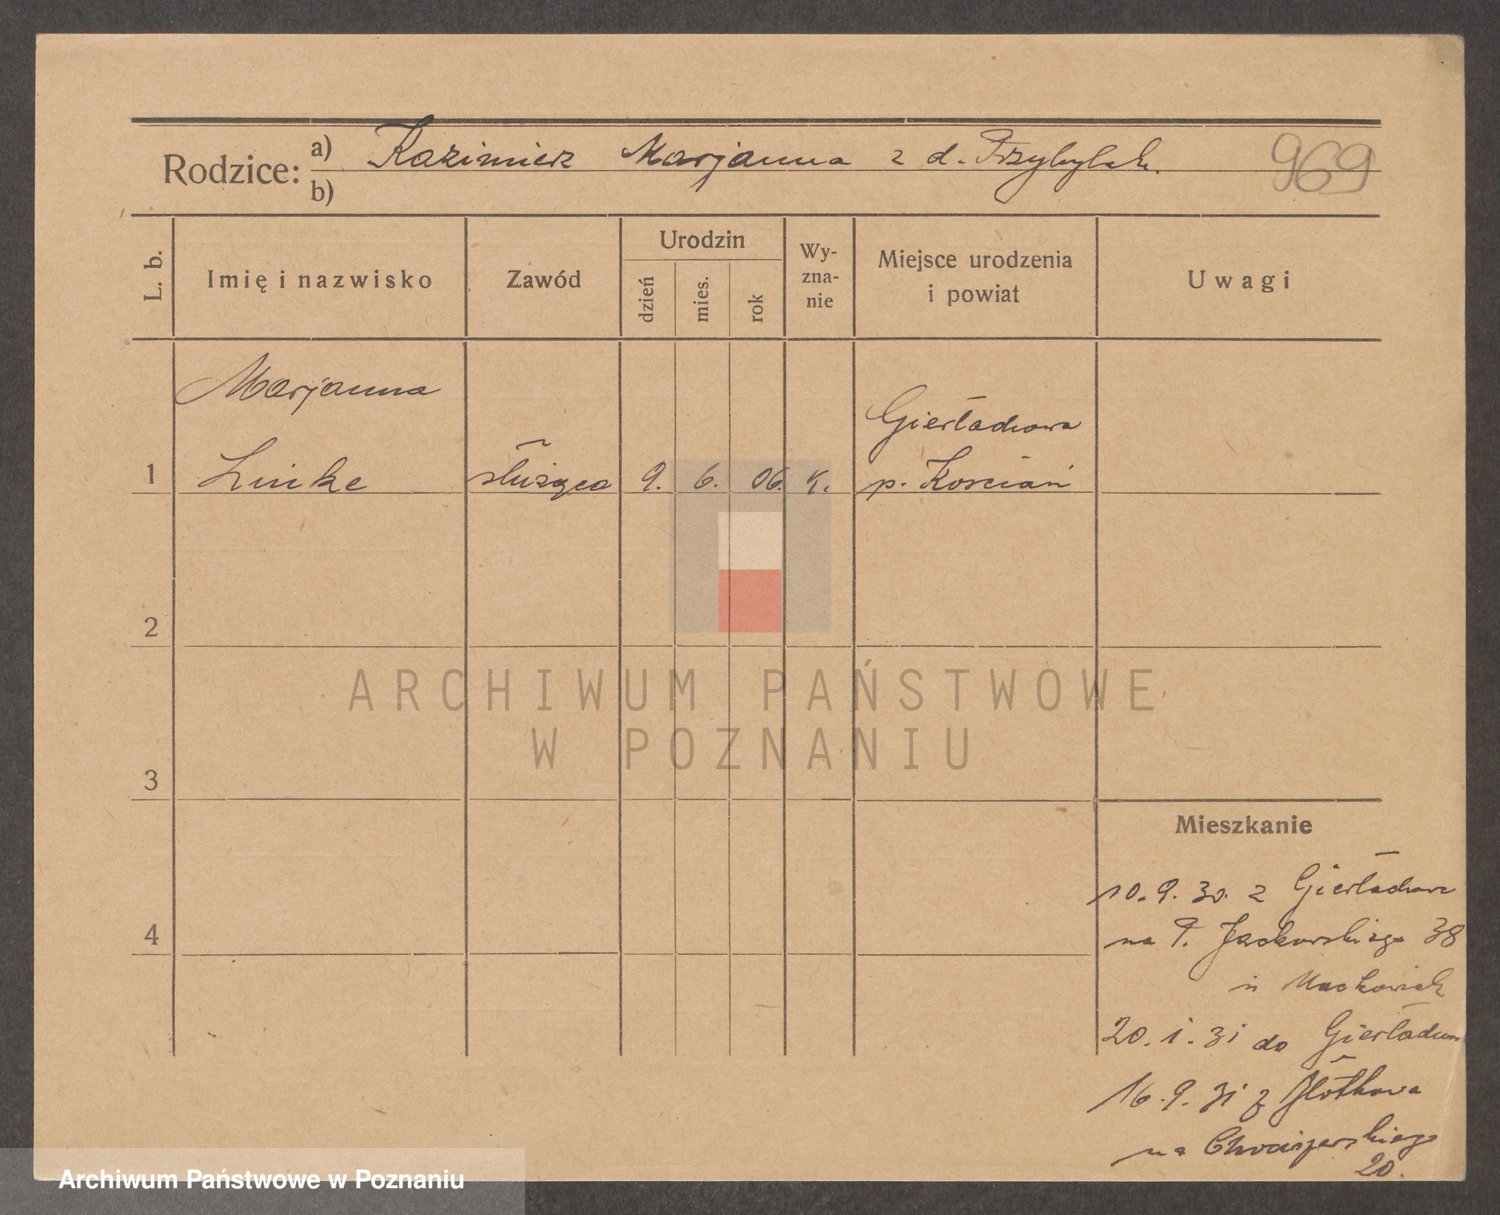 Rodzice: a) Kazimierz Marjanna z d. Przybylak.
b)
969
L. b.
Imię i nazwisko
Zawód
Urodzin
dzień
mies.
rok
Wy-
zna-
nie
Miejsce urodzenia
i powiat
Uwagi
Marjanna
Gierłachowa
1 Linke służąca 9. 6. 06. k. p. Kościan
2
ARCHIWUM PAŃSTWOWE
W POZNANIU
3
Mieszkanie
10.9.30. z Gierłachowa
na P. Jackowskiego 38
4
u Mackowiak
20.1.31 do
16.9.31 z
na
20.
Archiwum Państwowe w Poznaniu